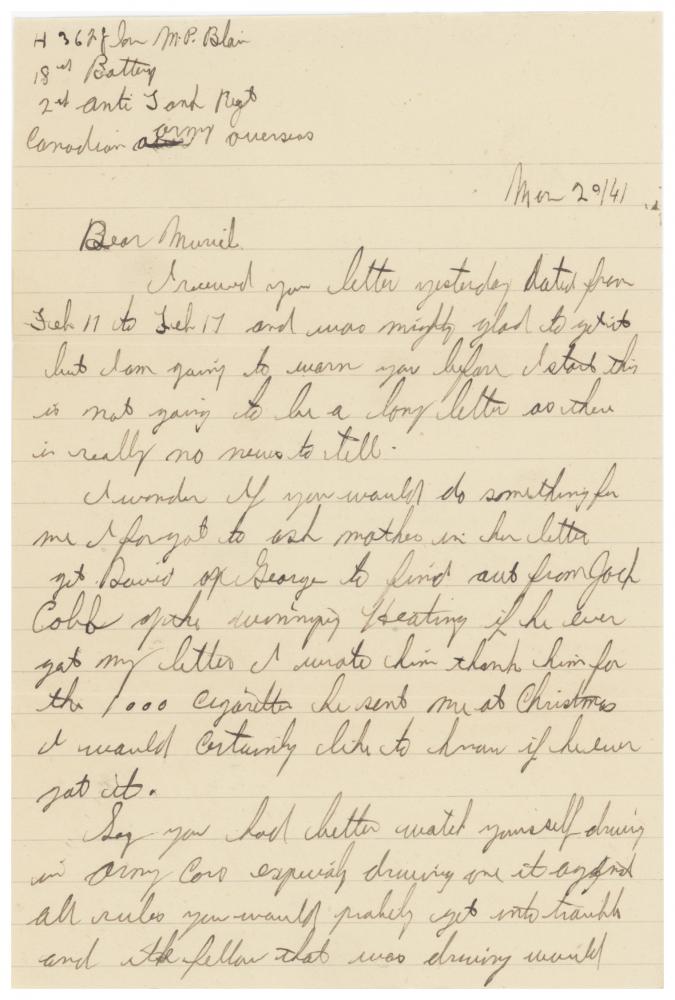 H 3627 Gnr M.P. Blair
18th Battery
2nd anti Tank Regt
Canadian army overseas
Mar 29/41
Dear Muriel
I received your letter yesterday dated from
Feb 11 to Feb 17 and was mighty glad to get it
but I am going to warn you before I start this
is not going to be a long letter as there
is really no news to tell.
I wonder if you would do something for
me I forgot to ask mother in her letter
get David or George to find out from Jack
Cobb of the winnipeg Heating if he ever
got my letter I wrote him thank him for
the 1000 cigarette he sent me at Christmas
I would certainly like to know if he ever
got it.
Say you had better watch yourself driving
in army cars especialy driving one it against
all rules you would probely get into trouble
and the fellow that was driving would